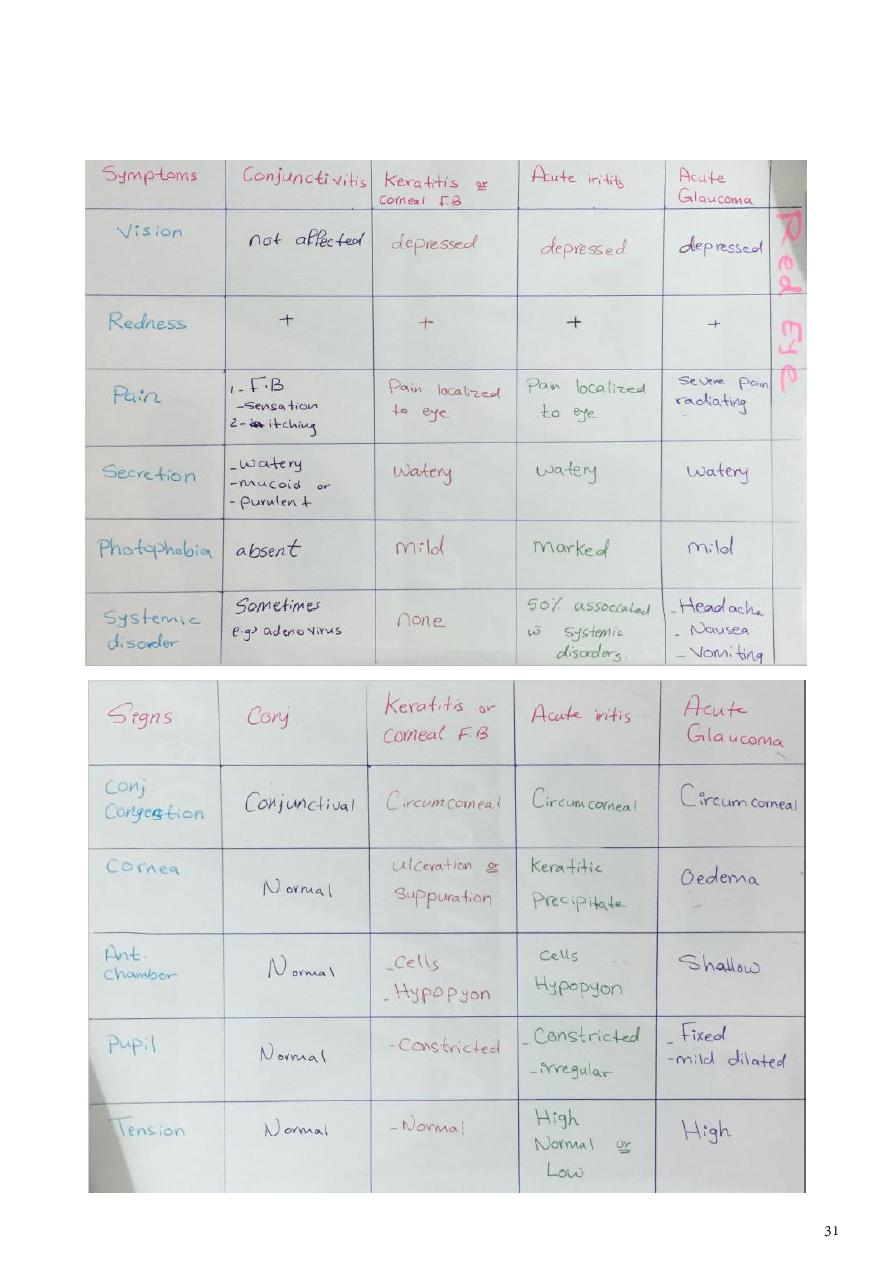 Symptoms Conjunctivitis Keratitis or corneal F.B Acute iritits Acute Glaucoma
Red Eye
Vision not affected depressed depressed depressed
Redness + + + +
Pain 1- F.B -sensation 2- itching Pain localized to eye Pan localized to eye severe pain radiating
Secretion -watery -mucoid or -purulent Watery watery Watery
Photophobia absent mild marked mild
Systemic disorder Sometimes e.g> adenovirus none 50% assoccated w̄ systemic disorders. -Headache - Nausea - Vomiting
Signs Conj. Keratitis or Corneal F.B Acute iritis Acute Glaucoma
Conj. Congestion Conjunctival Circumcorneal Circumcorneal Circumcorneal
Cornea Normal Ulceration or Suppuration Keratitic Precipitate Oedema
Ant. chamber Normal -Cells -Hypopyon Cells Hypopyon Shallow
Pupil Normal -Constricted -Constricted -irregular -Fixed -mild dilated
Tension Normal -Normal High Normal or Low High
31